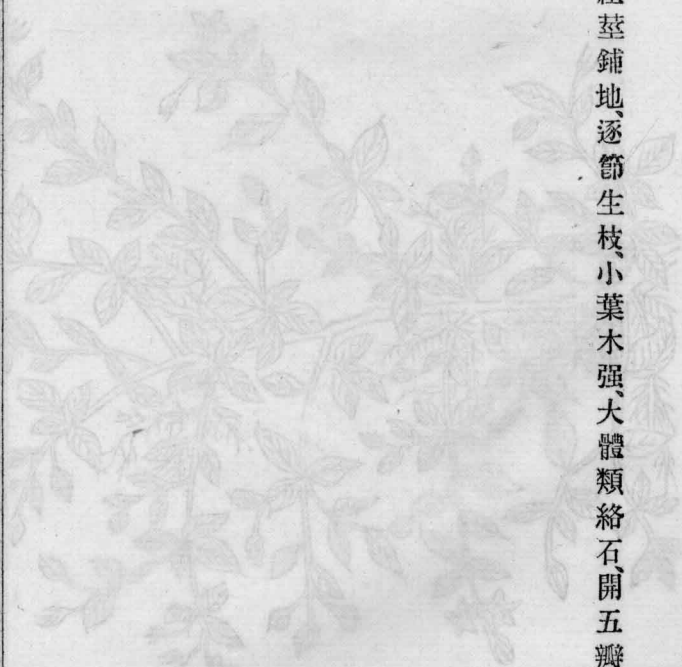 莖鋪地、逐節生枝、小葉木强、大體類絡石、開五瓣